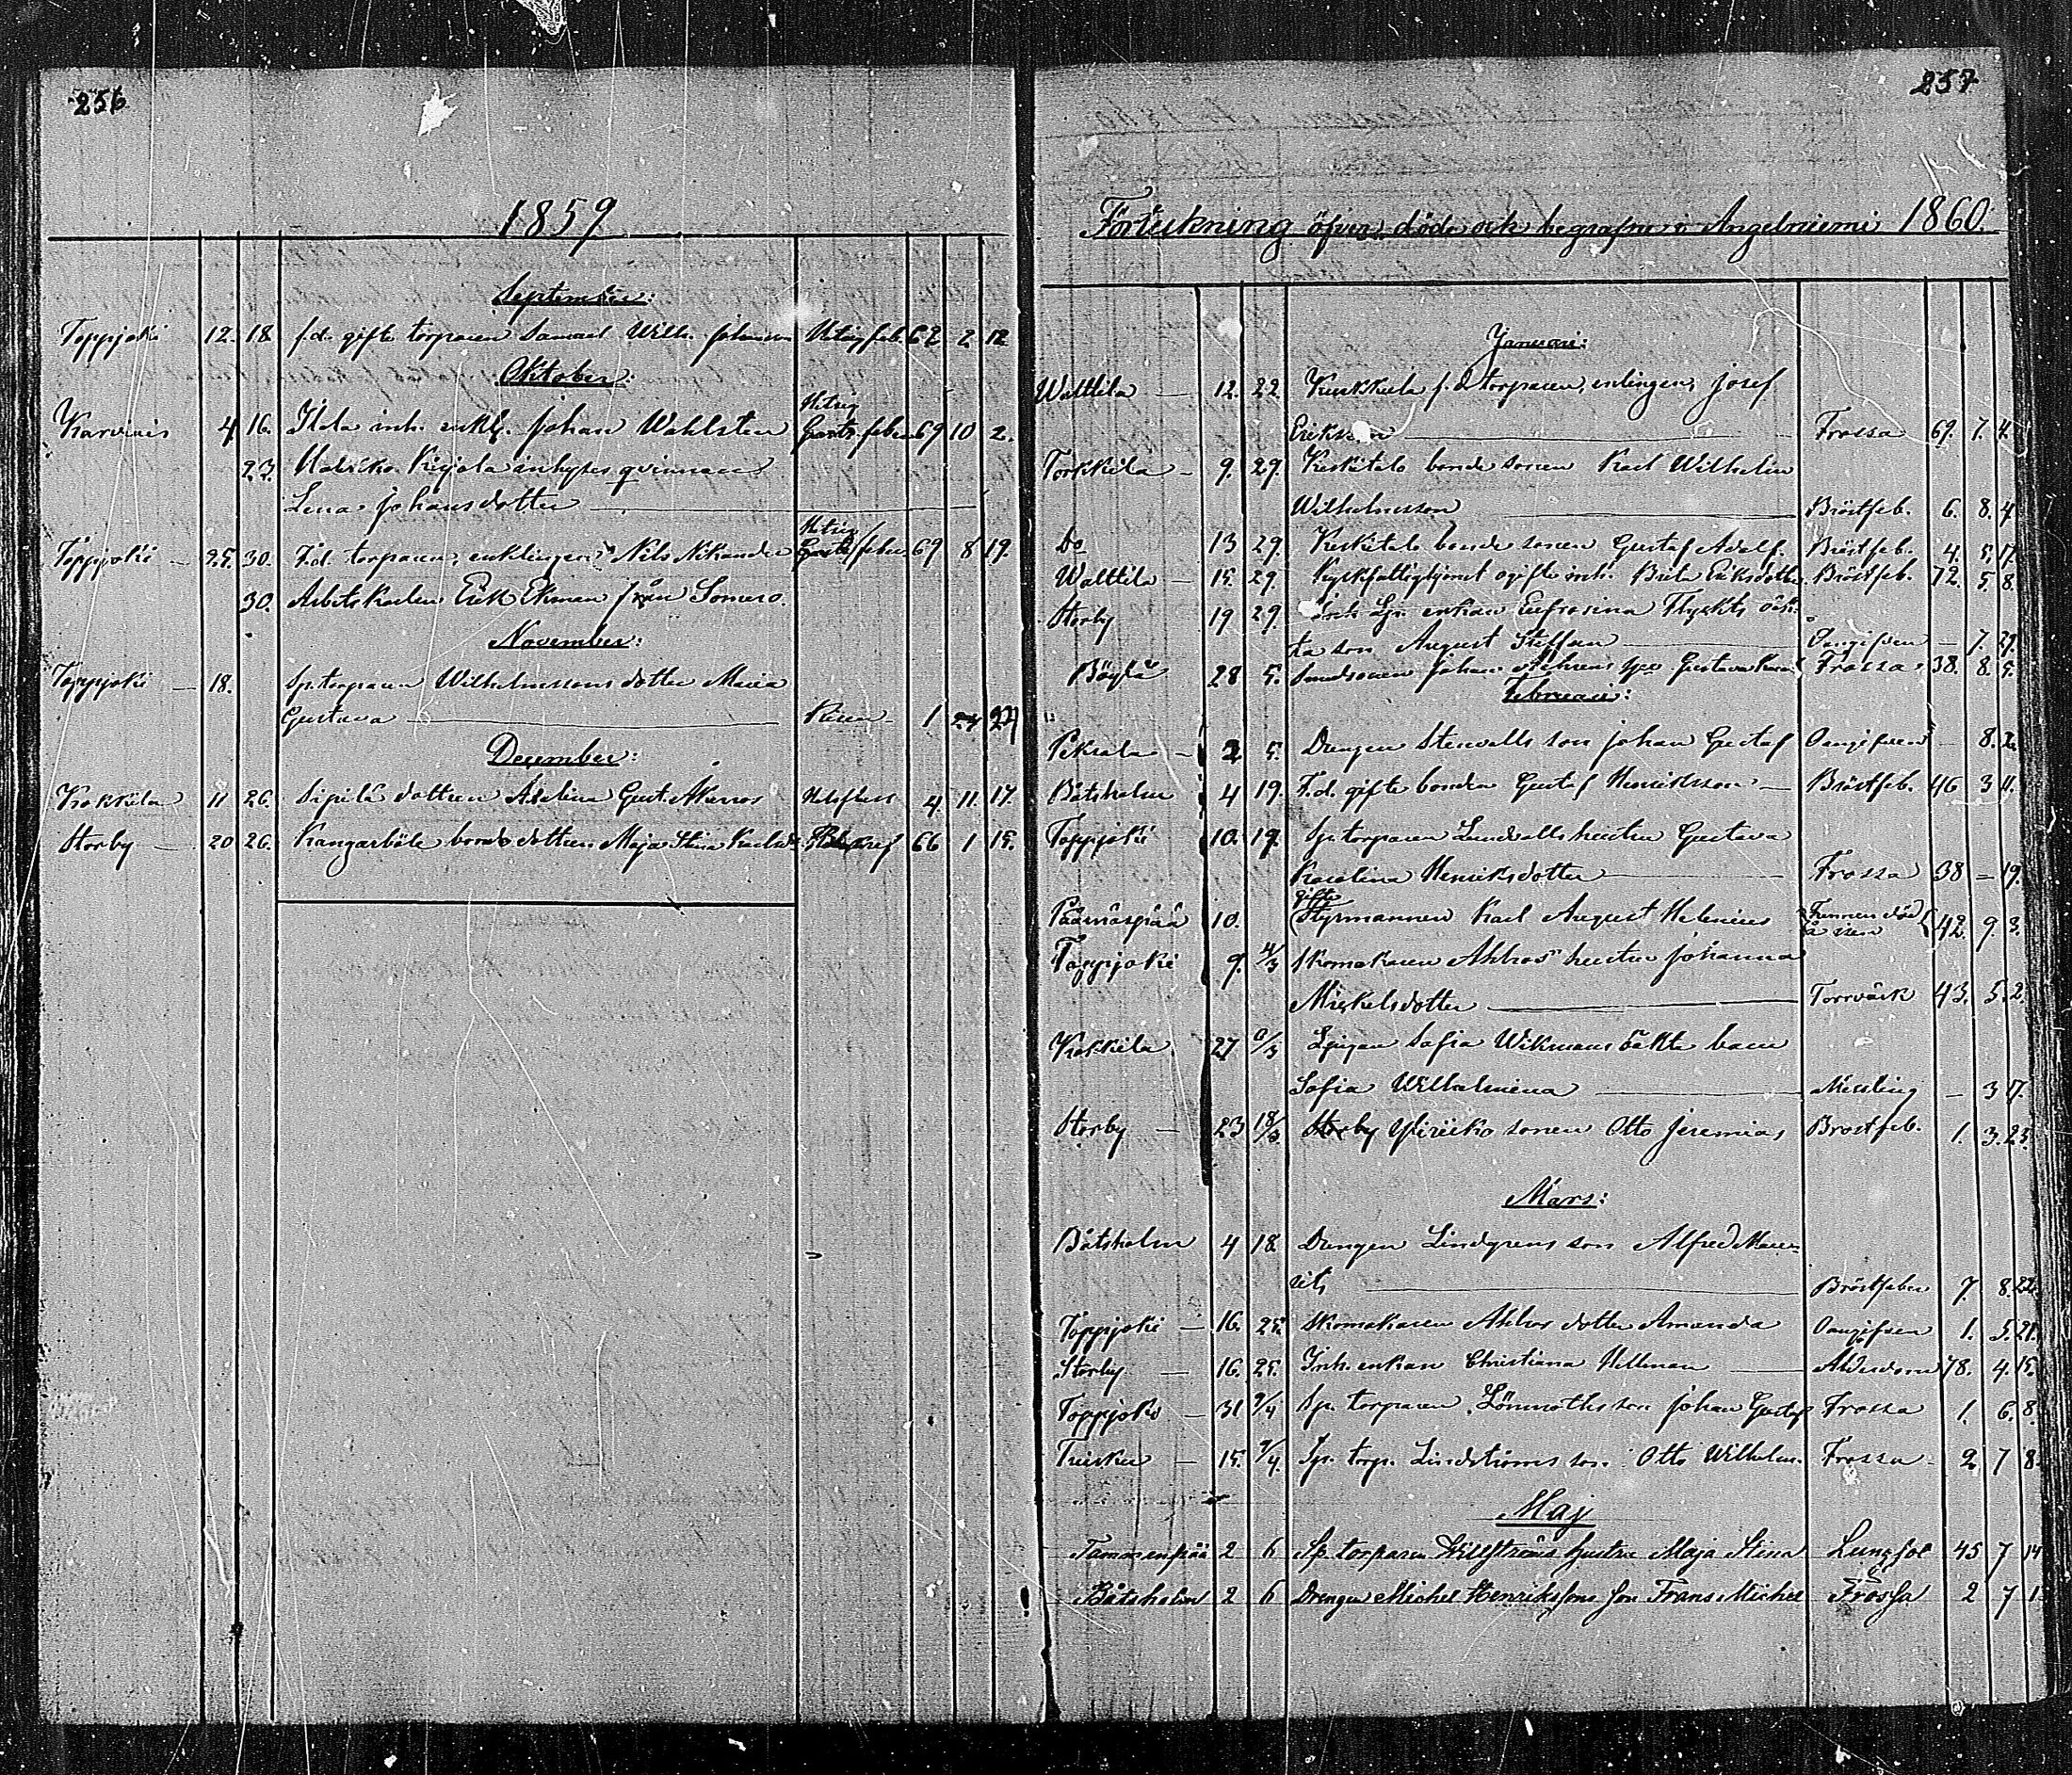 256
1859
September:
Toppjoki 12. 18. f.d. gifte torparen Samuel Wilh. Johansson 62 2 12
Oktober:
Hetsig
Karvais 4 16. Itala inh. enkl. Johan Wahlsten 69 10 2.
23. Kirjala inhyses qvinnan
Lena Johansdotter
Hetsig
Toppjoki 25. 30. F.d. torparen, enklingen Nils Nikander feber 69 8 19.
30. Arbetskarlen Erik Ekman från Somero.
November:
Toppjoki 18. Sp. torparen Wilhelmssons dotter Maria
Gustava 1
December:
Kokkila 11 26. Sipilä dottren Adelina Gust. 4 11. 17.
Storby 20 26. Kangarböle bonde dottren Maja Stina 66 1 15.
257
Förtekning öfver döde och begrafne i Angelniemi 1860.
Januari:
Walttila 12. 22. f.d. torparen, enlingen, Josef
Eriksson Frossa 69. 7. 4.
Torkkila 9. 29. Keskitalo bonde sonen Karl Wilhelm
Wilhelmsson Bröstfeb. 6. 8. 4
Do 13 29. Keskitalo bonde sonen Gustaf Adolf. Bröstfeb. 4. 5. 17.
Walttila 15. 29. ogifte inh. Brita Eriksdotter Bröstfeb. 72. 5. 8.
Storby 19 29. Inh. enkan Eufrosina Flyckts oäk-
ta son August Steffan Oangifven 7. 29.
Böylä 28 5. Johan Frossa 38. 8. 5.
Februari:
Peksala 2 5. Drengen Stenvalls son Johan Gustaf Oangifven 8.
Båtsholm 4 19. F.d. gifte bonden Gustaf Henriksson Bröstfeb. 46 3 11.
Toppjoki 10. 19. Sp. torparen Lundvalls hustru Gustava
Karolina Henriksdotter Frossa 38 – 19.
gifte
Päärnäspää 10. Styrmannen Karl August Helenius Funnen död 42. 9 3.
Toppjoki 9. 4/3 Skomakaren Ahlros hustru Johanna
Mickelsdotter Torrvärk 43. 5. 2.
Kokkila 27 Pigan Sofia Wikmans oäkta barn
Sofia Wilhelmina Messling – 3 17.
Storby 23 18/3 Storby Yliriiko sonen Otto Jeremias Bröstfeb. 1. 3. 25.
Mars:
Båtsholm 4 18 Drengen Lindgrens son Alfred Mau-
rits Bröstfeber 7 8 22.
Toppjoki 16. 25. Skomakaren Ahlros dotter Amanda Oangifven 1. 5. 21.
Storby 16. 25. Inh. enkan Christiana Hellman Ålderdom 78. 4. 15.
Toppjoki 31 9/4 Sp. torparen Lönnroths son Johan Gustaf Frossa 1. 6. 8.
15. 9/4. Sp. torp. Lindströms son Otto Wilhelm. Frossa 2 7 8.
Maj
Tammenpää 2 6 Sp. torparen Willströms hustru Maja Stina Lungsot 45 7 14
Båtsholm 2 6 Drengen Michel Henrikssons son Frans Michel Frossa 2 7 1